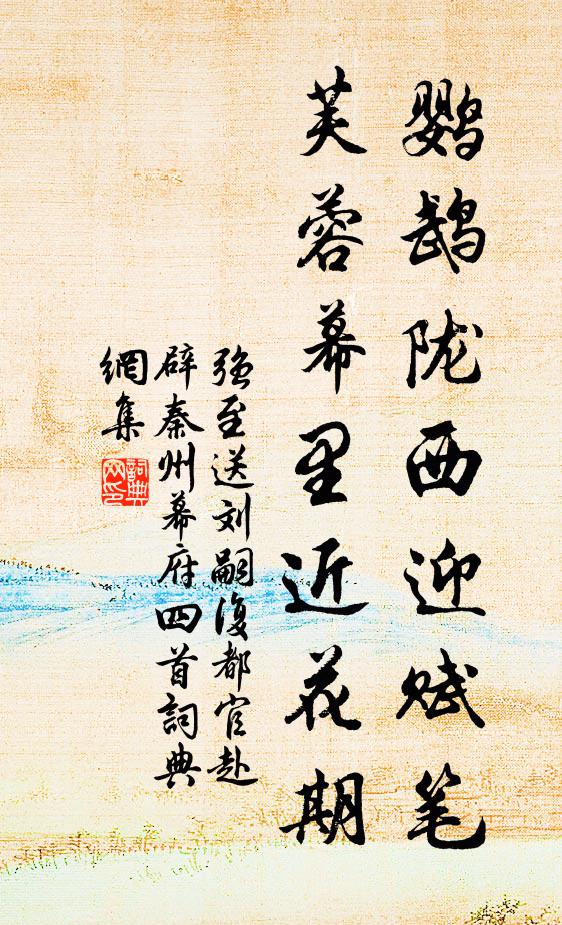 鹦鹉陇西迎赋笔
芙蓉幕里近花期
强至送刘嗣復都官赴
辟秦州幕府四首詞典
網集
詞典网印